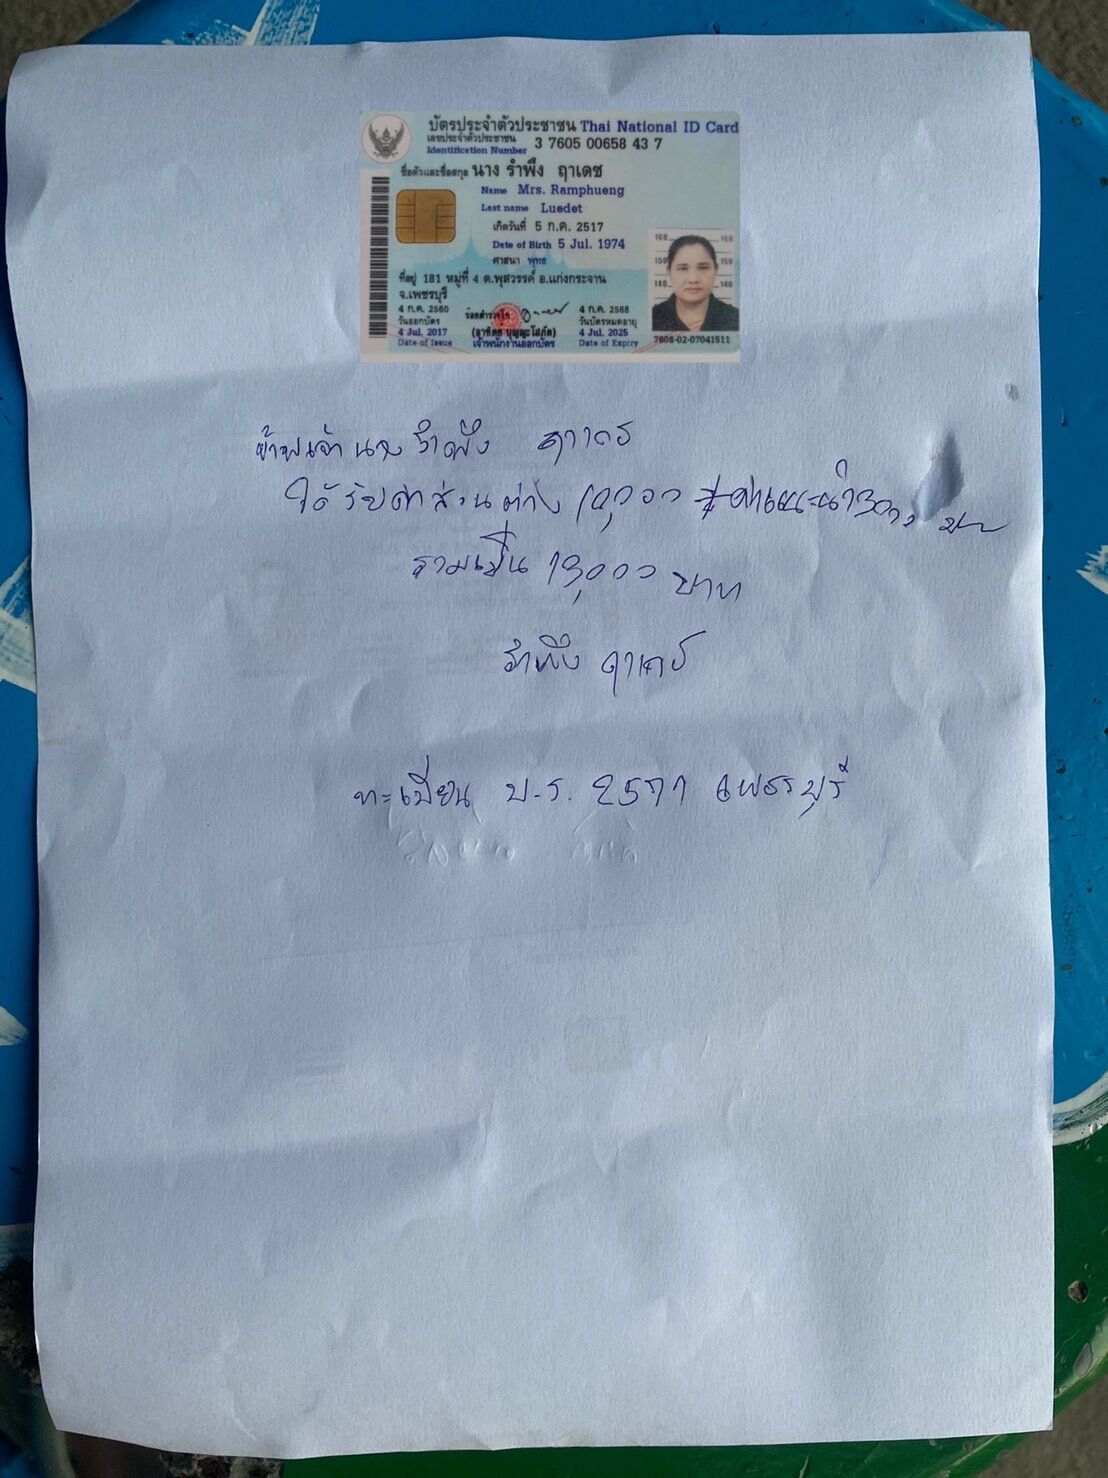 บัตรประจำตัวประชาชน Thai National ID Card
เลขประจำตัวประชาชน
Identification Number 3 7605 00658 43 7
ชื่อตัวและชื่อสกุล นาง รำพึง ฤาเดช
Name Mrs. Ramphueng
Last name Luedet
เกิดวันที่ 5 ก.ค. 2517
Date of Birth 5 Jul. 1974
ศาสนา พุทธ
ที่อยู่ 181 หมู่ที่ 4 ต.พุสวรรค์ อ.แก่งกระจาน
จ.เพชรบุรี
4 ก.ค. 2560
วันออกบัตร
4 Jul. 2017
Date of Issue
ร้อยตำรวจโท
(อาทิตย์ บุญญะโสภัต)
เจ้าพนักงานออกบัตร
4 ก.ค. 2568
วันบัตรหมดอายุ
4 Jul. 2025
Date of Expiry
160 160
150 150
140 140
7608-02-07041511
ข้าพเจ้า นาง รำพึง ฤาเดช
ได้รับค่าส่วนต่าง 10,000 ค่าแนะนำ 3000 บาท
รวมเป็น 13,000 บาท
รำพึง ฤาเดช
ทะเบียน บ-ร. 2571 เพชรบุรี